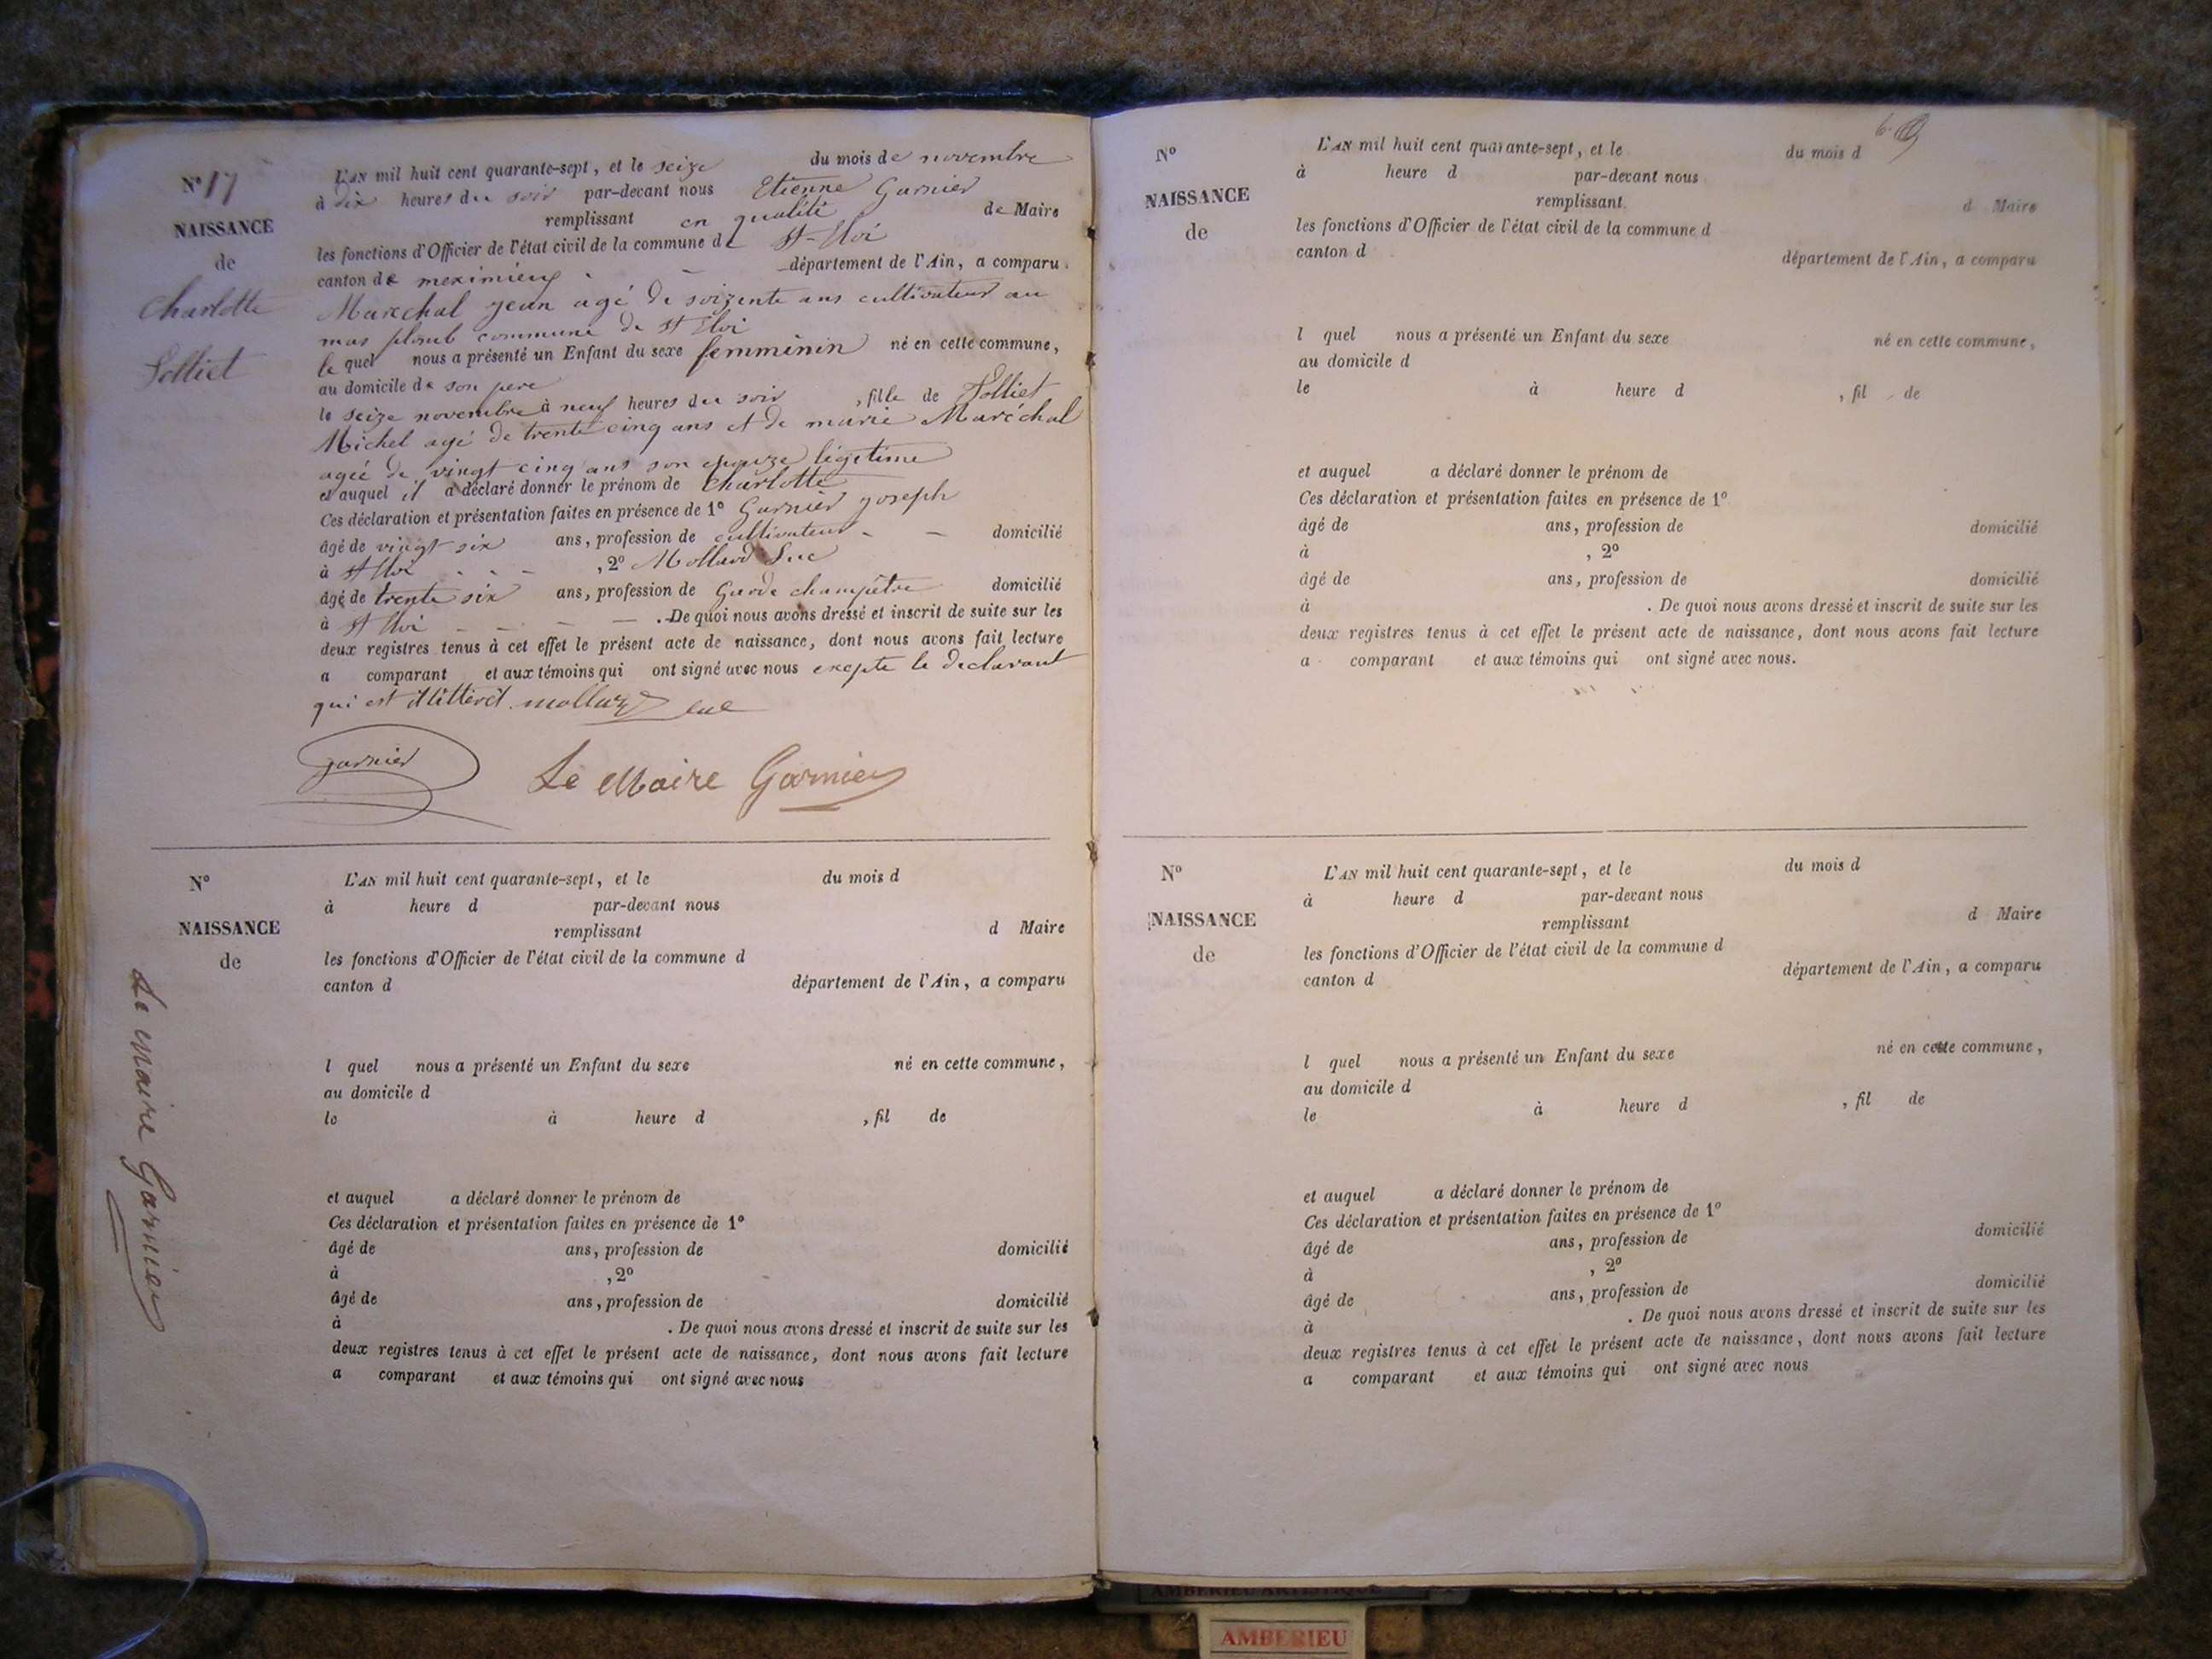 N° 17
NAISSANCE
de
Charlotte
Folliet
L'AN mil huit cent quarante-sept, et le seize du mois de novembre
à dix heures du soir par-devant nous Etienne Garnier
remplissant en qualité de Maire
les fonctions d'Officier de l'état civil de la commune de St-Eloi
canton de meximieux département de l'Ain, a comparu
Marechal jean agé de soizente ans cultivateur au
mas plomb commune de St Eloi
le quel nous a présenté un Enfant du sexe femminin né en cette commune,
au domicile de son pere
le seize novembre à neuf heures du soir, fille de Folliet
Michel agé de trente cinq ans et de marie Maréchal
agée de vingt cinq ans son epouze légitime
et auquel il a déclaré donner le prénom de Charlotte
Ces déclaration et présentation faites en présence de 1° Garnier joseph
âgé de vingt six ans, profession de cultivateur domicilié
à St Eloi, 2° Mollard Luc
âgé de trente six ans, profession de Garde champêtre domicilié
à St Eloi. De quoi nous avons dressé et inscrit de suite sur les
deux registres tenus à cet effet le présent acte de naissance, dont nous avons fait lecture
a comparant et aux témoins qui ont signé avec nous excepte le declarant
qui est illitteret. mollard luc
garnier
Le Maire Garnier
N°
NAISSANCE
de
L'AN mil huit cent quarante-sept, et le du mois d
à heure d par-devant nous
remplissant d Maire
les fonctions d'Officier de l'état civil de la commune d
canton d département de l'Ain, a comparu
l quel nous a présenté un Enfant du sexe né en cette commune,
au domicile d
le à heure d , fil de
et auquel a déclaré donner le prénom de
Ces déclaration et présentation faites en présence de 1°
âgé de ans, profession de domicilié
à , 2°
âgé de ans, profession de domicilié
à . De quoi nous avons dressé et inscrit de suite sur les
deux registres tenus à cet effet le présent acte de naissance, dont nous avons fait lecture
a comparant et aux témoins qui ont signé avec nous
Le maire Garnier
N°
NAISSANCE
de
L'AN mil huit cent quarante-sept, et le du mois d
à heure d par-devant nous
remplissant d Maire
les fonctions d'Officier de l'état civil de la commune d
canton d département de l'Ain, a comparu
l quel nous a présenté un Enfant du sexe né en cette commune,
au domicile d
le à heure d , fil de
et auquel a déclaré donner le prénom de
Ces déclaration et présentation faites en présence de 1°
âgé de ans, profession de domicilié
à , 2°
âgé de ans, profession de domicilié
à . De quoi nous avons dressé et inscrit de suite sur les
deux registres tenus à cet effet le présent acte de naissance, dont nous avons fait lecture
a comparant et aux témoins qui ont signé avec nous.
N°
NAISSANCE
de
L'AN mil huit cent quarante-sept, et le du mois d
à heure d par-devant nous
remplissant d Maire
les fonctions d'Officier de l'état civil de la commune d
canton d département de l'Ain, a comparu
l quel nous a présenté un Enfant du sexe né en cette commune,
au domicile d
le à heure d , fil de
et auquel a déclaré donner le prénom de
Ces déclaration et présentation faites en présence de 1°
âgé de ans, profession de domicilié
à , 2°
âgé de ans, profession de domicilié
à . De quoi nous avons dressé et inscrit de suite sur les
deux registres tenus à cet effet le présent acte de naissance, dont nous avons fait lecture
a comparant et aux témoins qui ont signé avec nous
AMBERIEU ARTISTIQUE
AMBERIEU